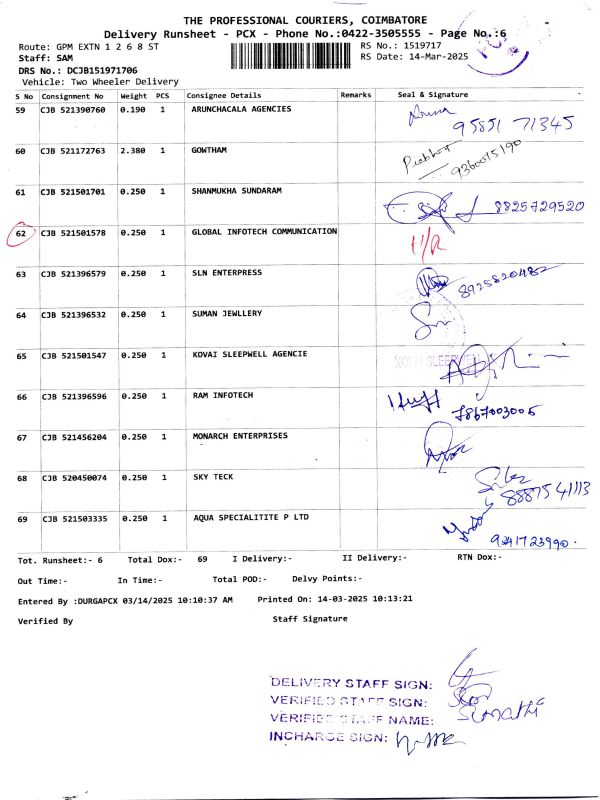 THE PROFESSIONAL COURIERS, COIMBATORE
Delivery Runsheet - PCX - Phone No.:0422-3505555 - Page No.:6
Route: GPM EXTN 1 2 6 8 ST
RS No.: 1519717
Staff: SAM
RS Date: 14-Mar-2025
DRS No.: DCJB151971706
Vehicle: Two Wheeler Delivery
S No Consignment No Weight PCS Consignee Details Remarks Seal & Signature
59 CJB 521390760 0.190 1 ARUNCHACALA AGENCIES
95851 71345
60 CJB 521172763 2.380 1 GOWTHAM
Prabhot 9360015190
61 CJB 521501701 0.250 1 SHANMUKHA SUNDARAM
8825729520
62 CJB 521501578 0.250 1 GLOBAL INFOTECH COMMUNICATION
H/R
63 CJB 521396579 0.250 1 SLN ENTERPRESS
8925820482
64 CJB 521396532 0.250 1 SUMAN JEWLLERY
65 CJB 521501547 0.250 1 KOVAI SLEEPWELL AGENCIE
KOVAI SLEEPWELL
66 CJB 521396596 0.250 1 RAM INFOTECH
7867003005
67 CJB 521456204 0.250 1 MONARCH ENTERPRISES
68 CJB 520450074 0.250 1 SKY TECK
88875 41113
69 CJB 521503335 0.250 1 AQUA SPECIALITITE P LTD
9241723990.
Tot. Runsheet:- 6 Total Dox:- 69 I Delivery:- II Delivery:- RTN Dox:-
Out Time:- In Time:- Total POD:- Delvy Points:-
Entered By :DURGAPCX 03/14/2025 10:10:37 AM Printed On: 14-03-2025 10:13:21
Verified By Staff Signature
DELIVERY STAFF SIGN:
VERIFIED STAFF SIGN:
VERIFIED STAFF NAME: Sumathi
INCHARGE SIGN: